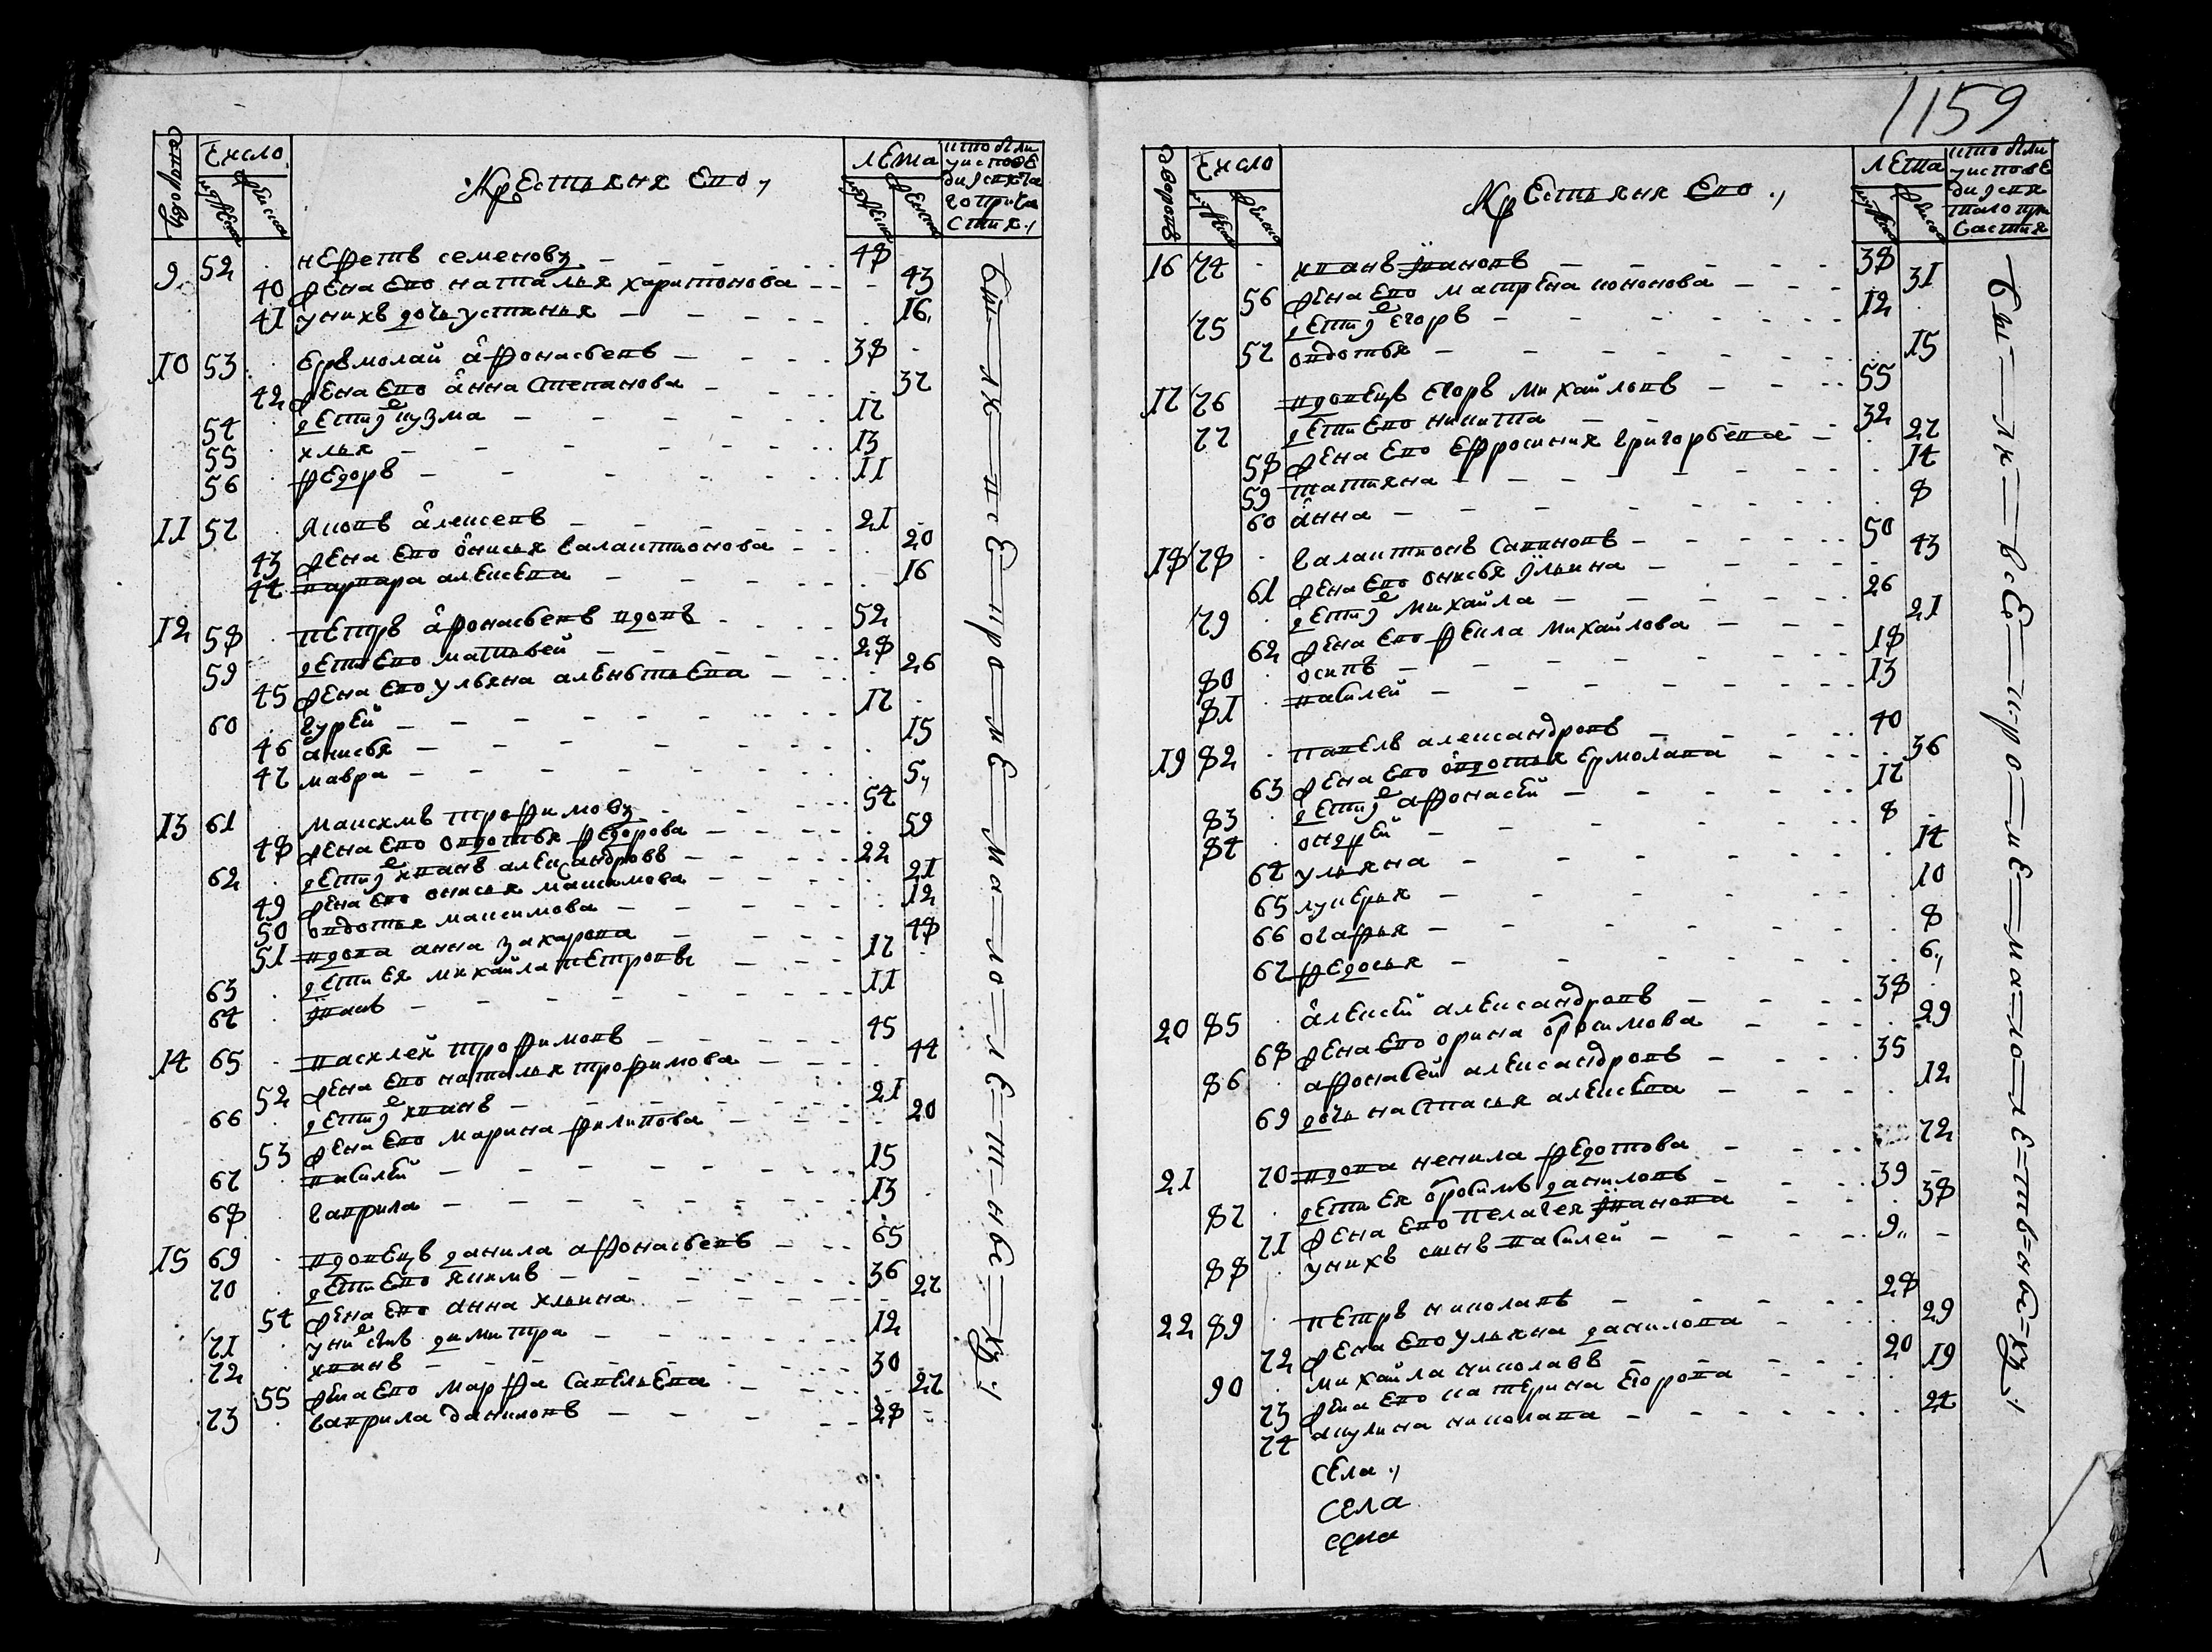 Число
Крестьяня Ево
Лета
9 52 Нефетъ семеновъ 48
40 жена Ево наталья харитонова 43
41 у нихъ дочь устинья 16
10 53 Ермолай афонасьевъ 38
42 жена Ево анна степанова 37
54 дети кузма 17
55 илья 13
56 федоръ 11
11 57 Яковъ алексевъ 21
43 жена Ево онисья галактионова 20
44 варвара алексева 16
12 58 петръ афонасьевъ вдовъ 52
59 дети Ево матьвей 28
45 жена Ево ульяна 26
60 гурей 17
46 анисья 15
47 мавра 5
13 61 максимъ трофимовъ 54
48 жена Ево овдотья федорова 59
62 дети иванъ александровъ 22
49 жена Ево онисья максимова 21
50 овдотья максимова 12
51 вдова анна захарова 48
63 дети Ея михайла петровы 17
64 иванъ 11
14 65 василей трофимовъ 45
52 жена Ево наталья трофимова 44
66 дети иванъ 21
53 жена Ево марина филипова 20
67 василей 15
68 гаврила 13
15 69 вдовецъ данила афонасьевъ 65
70 дети Ево якимъ 36
54 жена Ево анна ильина 27
71 у них сынъ димитри 12
72 иванъ 30
55 жена Ево марфа савельева 27
73 гаврила даниловъ 28
1159
Число
Крестьяня Ево
Лета
16 74 иванъ ивановъ 38
56 жена Ево матрена кононова 31
75 дети егоръ 12
57 овдотья 15
17 76 вдовецъ егоръ михайловъ 55
77 дети Ево никита 32
58 жена Ево Ефросиния григорьева 27
59 татияна 14
60 анна 8
18 78 галактионъ савиновъ 50
61 жена Ево онисья ильина 43
79 дети михайла 26
62 жена Ево фекла михайлова 21
80 осипъ 18
81 василей 13
19 82 павелъ александровъ 40
63 жена Ево овдотья ермолава 36
83 дети афонасей 17
84 ондрей 8
64 ульяна 14
65 лукерья 10
66 огафья 8
67 федосья 6
20 85 алексей александровъ 38
68 жена Ево орина офросимова 29
86 афонасей александровъ 35
69 дочь настасья алексева 12
21 70 вдова ненила федотова 72
87 дети Ея даниловъ 39
71 жена Ево пелагея иванова 38
88 у нихъ сынъ василей 9
22 89 петръ николавъ 28
72 жена Ево ульяна данилова 29
90 михайла николавъ 20
73 жена Ево катерина егорова 19
74 акулина николава 24
села
села